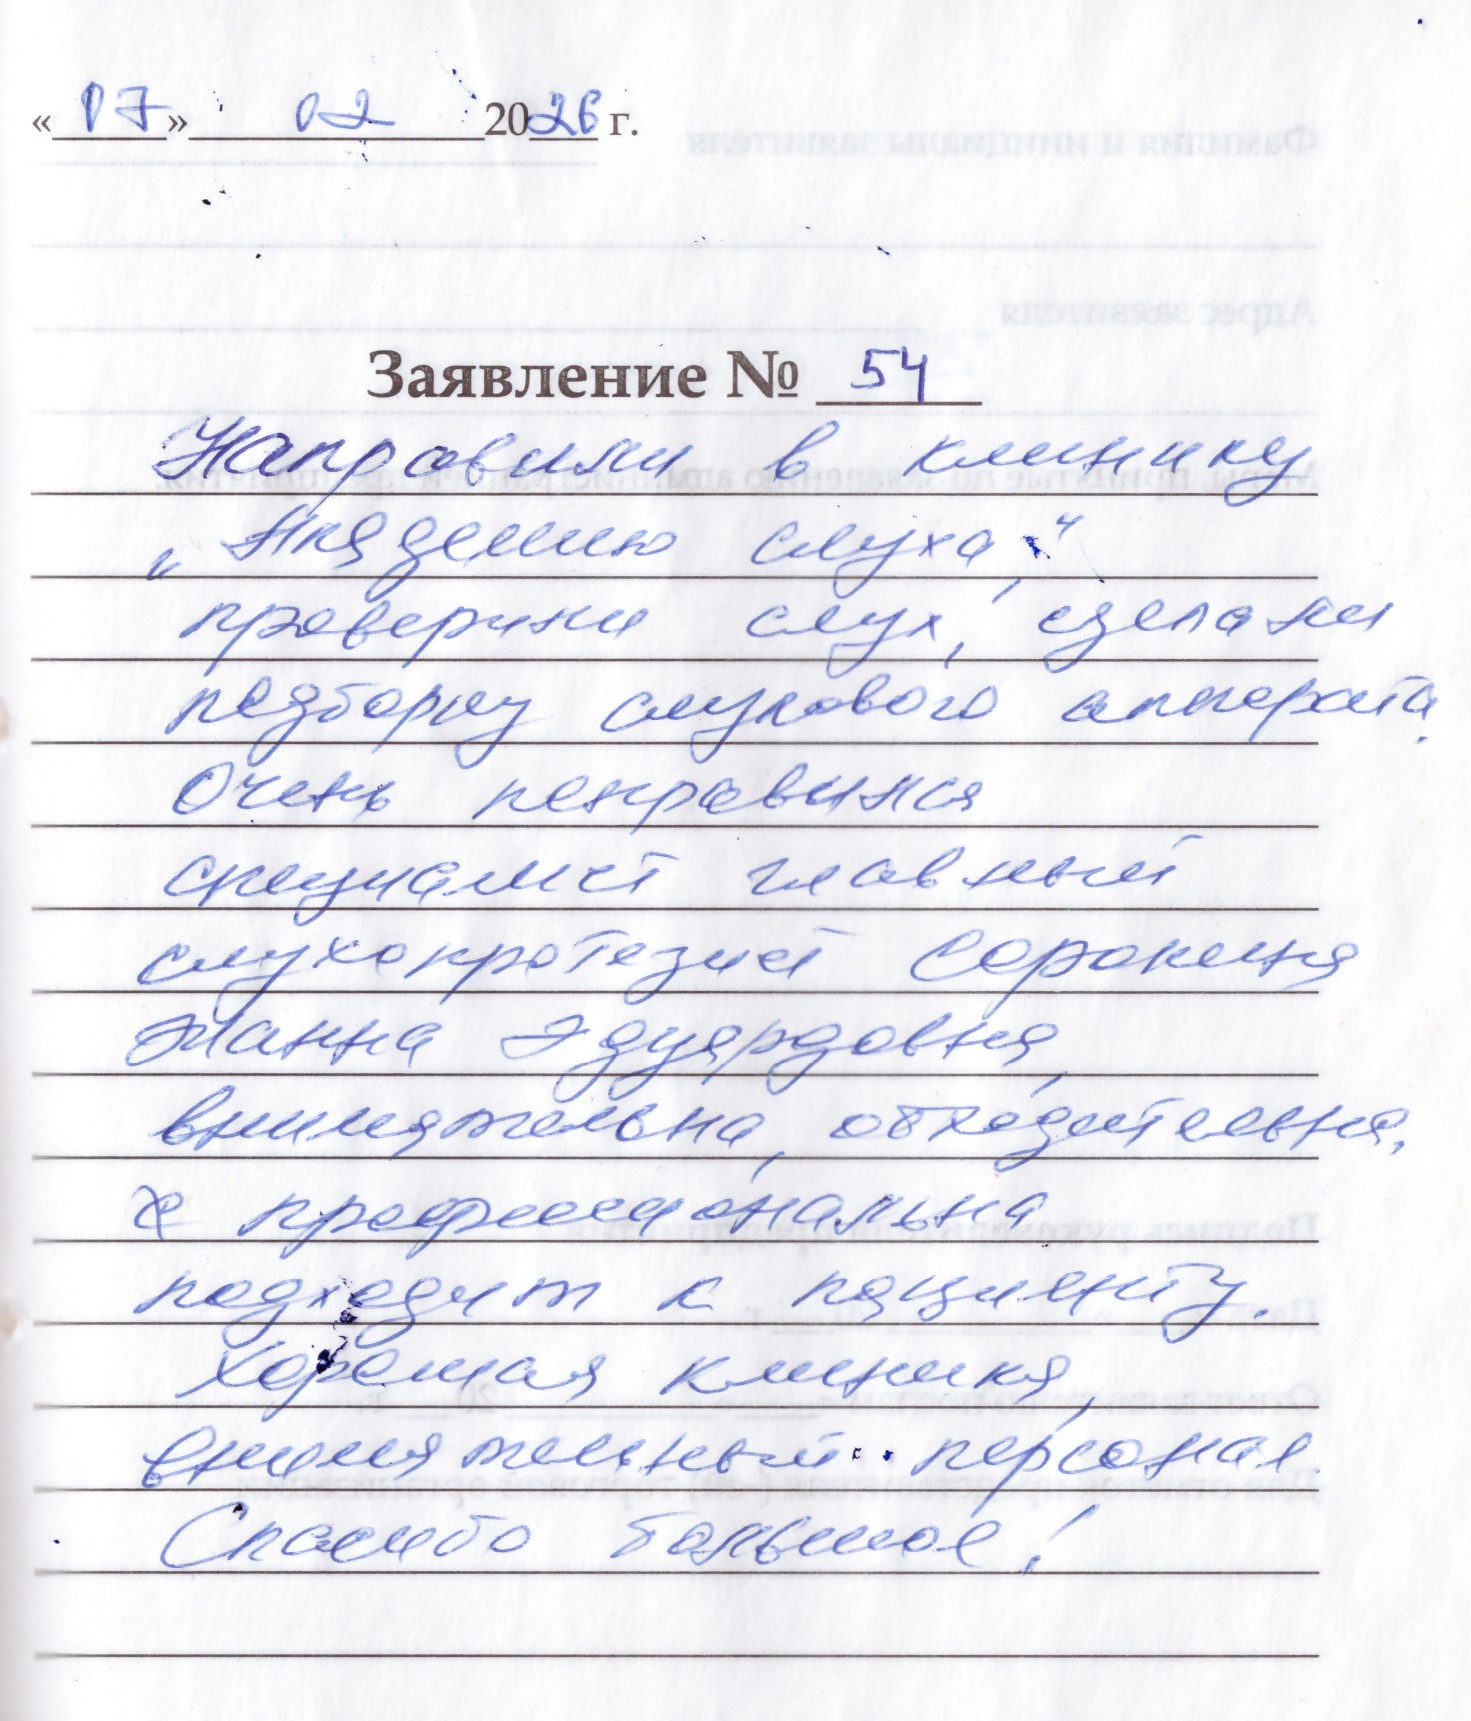 « 07 » 02 2026 г.
Заявление № 54
Направили в клинику
„Академию слуха,“
проверили слух, сделали
подборку слухового аппарата.
Очень понравился
специалист главный
слухопротезист Сорокина
Жанна Эдуардовна,
внимательна, обходительна,
профессионально
подходит к пациенту.
Хорошая клиника,
внимательный персонал.
Спасибо большое!